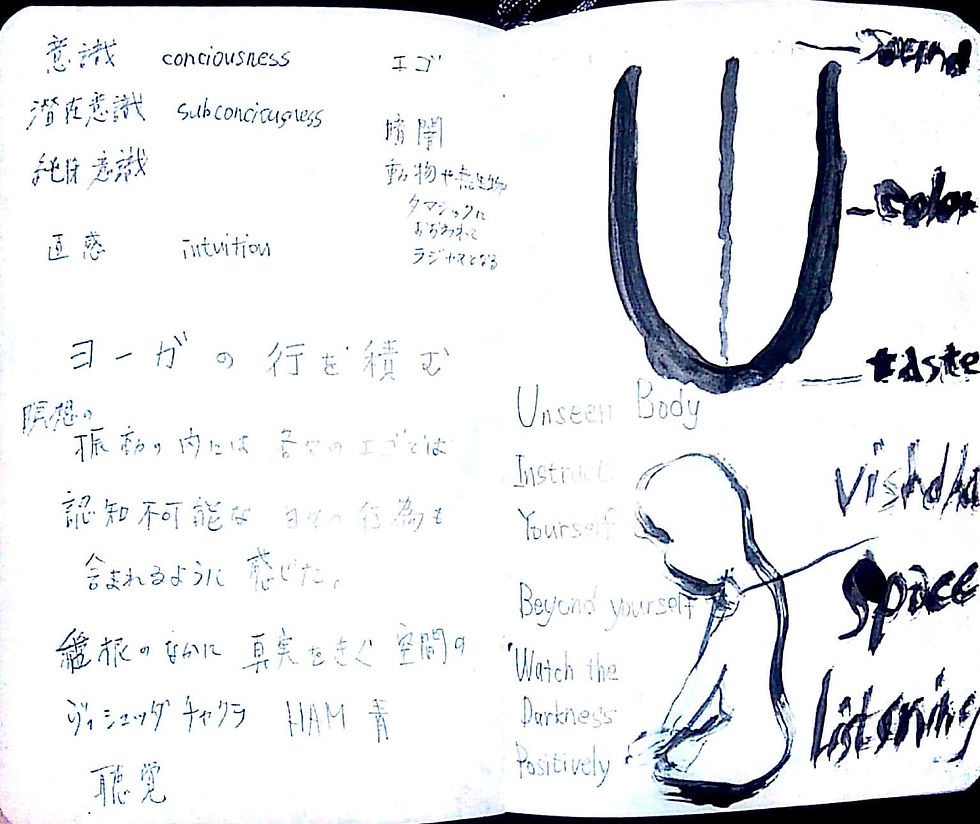 意識 conciousness エゴ
潜在意識 subconciousness
暗闇
純粋意識
動物や無生物
タマシックに
おおわれて
ラジャスとなる
直感 intuition
ヨーガの行を積む
瞑想の
振動の内には各々のエゴでは
認知不可能な日々の行為も
含まれるように感じた。
のなかに真実をきく空間の
ヴィシュッダチャクラ HAM 青
聴覚
Sound
color
taste
Unseen Body
Instruct
Yourself
Beyond yourself
Watch the
Darkness
Positively
space
Listening